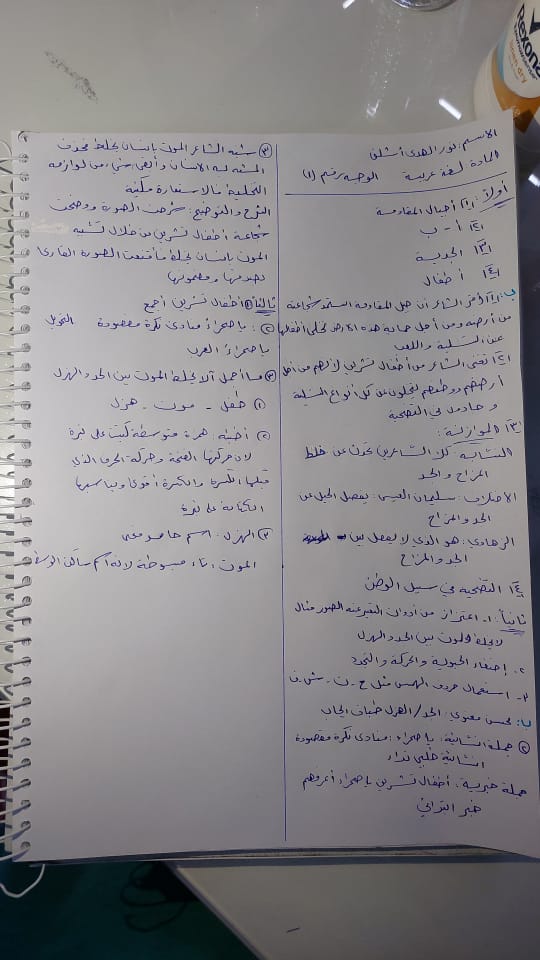 الاسم: نور الهدى أشلق
المادة لغة عربية الوجبه رقم (١)
أولاً: ١] أجيال المقاومة
٢] أ - ب
٣] الجدية
٤] أطفال
ب: ١] أقر الشاعر أن جيل المقاومة استمد شجاعة
من أرضه ومن أجل حماية هذه الارض تخلى أطفالها
عن التسلية واللعب
٢] تغنى الشاعر من أطفال تشرين لأنهم من أجل
أرضهم ووطنهم تخلون عن كل أنواع التسلية
و في التضحية
٣] الموازنة:
التشابه: كلا الشاعرين تحدث عن خلط
المزاح والجد
الاختلاف: سليمان العيسى: يفصل الجيل عن
الجد والمزاح
الرهاوي: هو الذي لا يفصل بين
الجد والمزاح
٤] التضحية في سبيل الوطن
ثانياً: ١- اعتزاز من أدوات التعبير عنه الصور مثال
لايخلط الموت بين الجد والهزل
٢- إضفاء الحيوية والحركة والتجدد
٣- استعمال حروف الهمس مثل ح - ت - ش - ف
ب: محسن معنوي: الجد / الهزل طباق إيجاب
② جملة انشائية: ياصحراء: منادى نكرة مقصودة
انشائية طلبي نداء
جملة خبرية: أطفال تشرين ياصحراء أعرفهم
خبر ابتدائي
③ شبه الشاعر الموت بإنسان يخلط فحذف
المشبه به الانسان وأبقى شيء من لوازمه
التخلية فالاستعارة مكنية
الشرح والتوضيح: شرحت الصورة ووضحت
شجاعة أطفال تشرين من خلال تشبيه
الموت بإنسان يخلط فأقنعت الصورة القارئ
بصدقها ومضمونها
ثالثاً: ① أطفال تشرين أجمع
②: ياصحراءُ منادى نكرة مقصودة التحويل
ياصحراءَ العرب
③ ما أجمل ألا يخلط الموت بين الجد والهزل
① طفل - موت - هزل
② أخبئه: همزة متوسطة كتبت على نبرة
لان حركتها الفتحة وحركة الحرف الذي
قبلها الكسرة والكسرة أقوى ويناسبها
الكتابة على نبرة
③ الهزل: اسم جامد معنى
الموت: التاء مبسوطة لانه اسم ساكن الوسط
Rexona